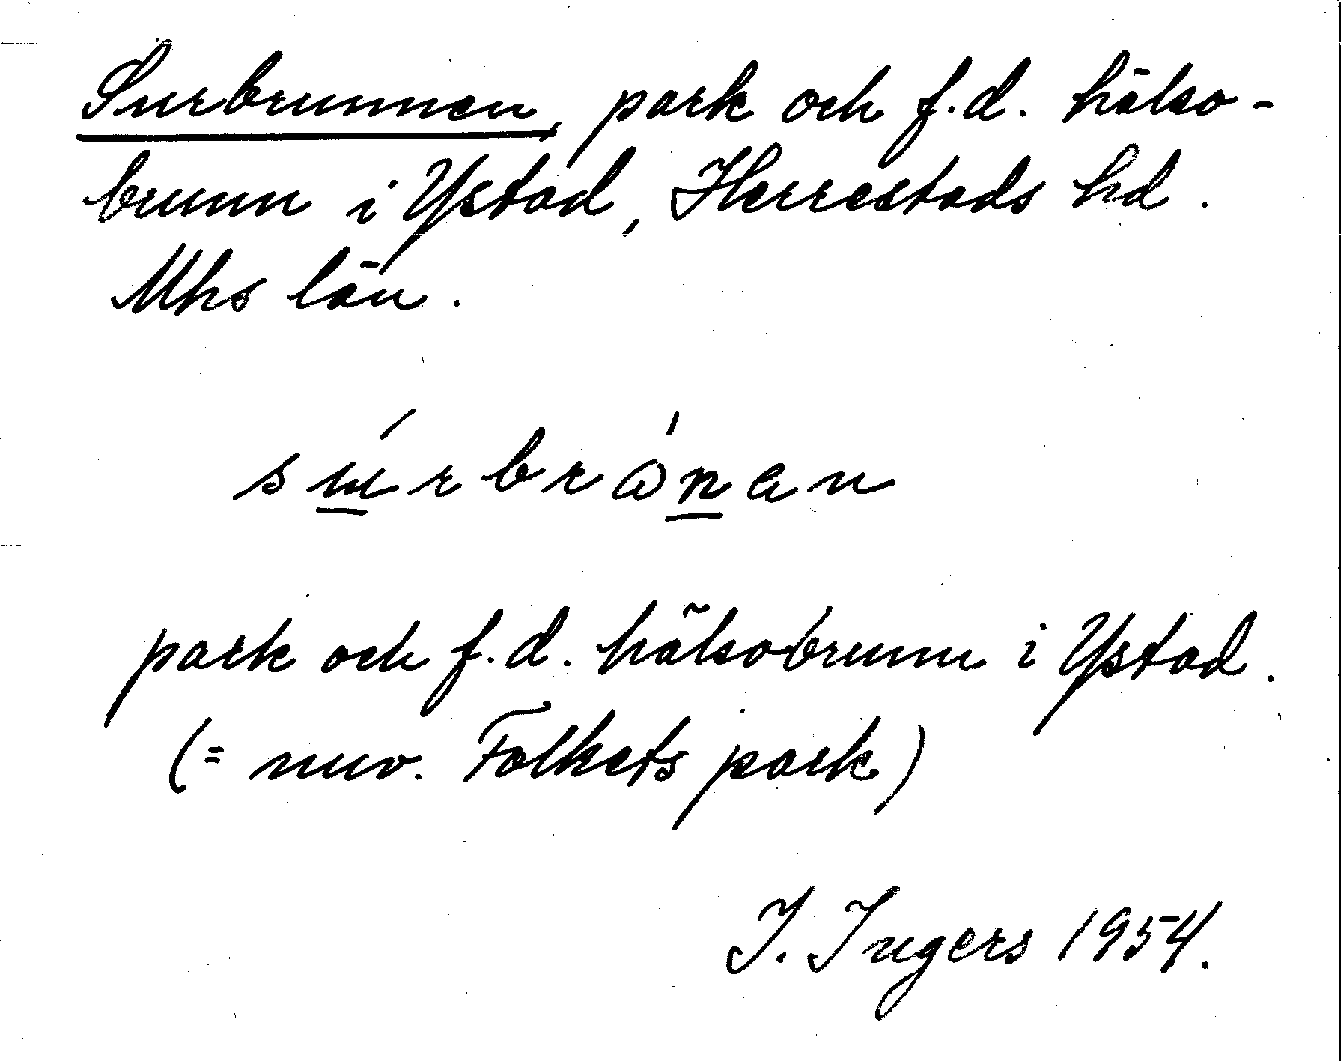 Surbrunnen, park och f.d. hälso-
brunn i Ystad, Herrestads hd.
Mhs län.
park och f.d. hälsobrunn i Ystad.
(= nuv. Folkets park)
I. Ingers 1954.